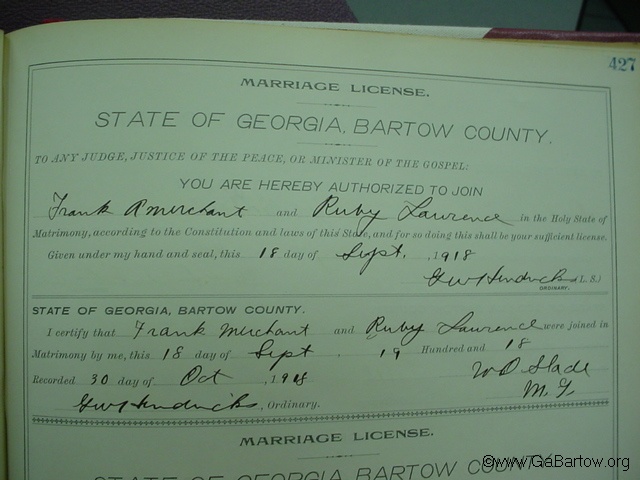 427
MARRIAGE LICENSE.
STATE OF GEORGIA, BARTOW COUNTY.
TO ANY JUDGE, JUSTICE OF THE PEACE, OR MINISTER OF THE GOSPEL:
YOU ARE HEREBY AUTHORIZED TO JOIN
Frank A merchant and Ruby Lawrence in the Holy State of
Matrimony, according to the Constitution and laws of this State, and for so doing this shall be your sufficient license.
Given under my hand and seal, this 18 day of Sept. , 1918
GW Hendricks (L. S.)
ORDINARY.
STATE OF GEORGIA, BARTOW COUNTY.
I certify that Frank Merchant and Ruby Lawrence were joined in
Matrimony by me, this 18 day of Sept. 19 Hundred and 18
Recorded 30 day of Oct , 1918 W D Slade
GW Hendricks, Ordinary. M. G.
MARRIAGE LICENSE.
STATE OF GEORGIA, BARTOW COUNTY.
©www.GaBartow.org